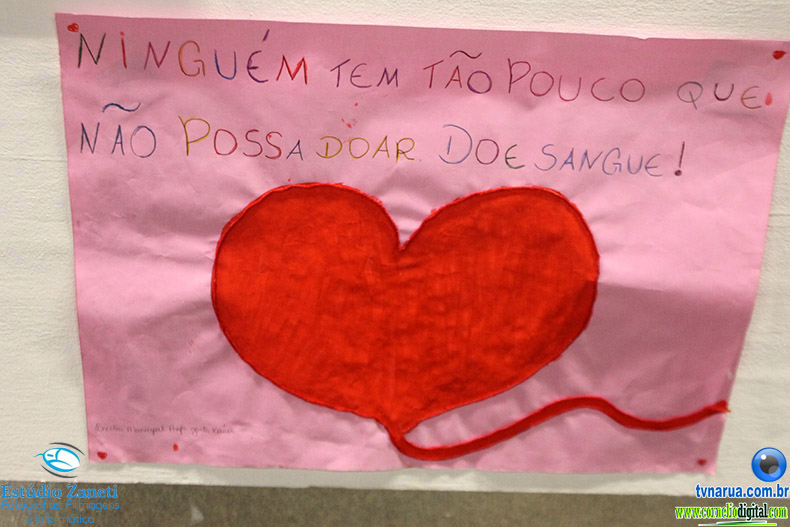 NINGUÉM TEM TÃO POUCO QUE
NÃO POSSA DOAR. DOE SANGUE!
Escola Municipal Prof
Estúdio Zaneti
tvnarua.com.br
www.corneliodigital.com